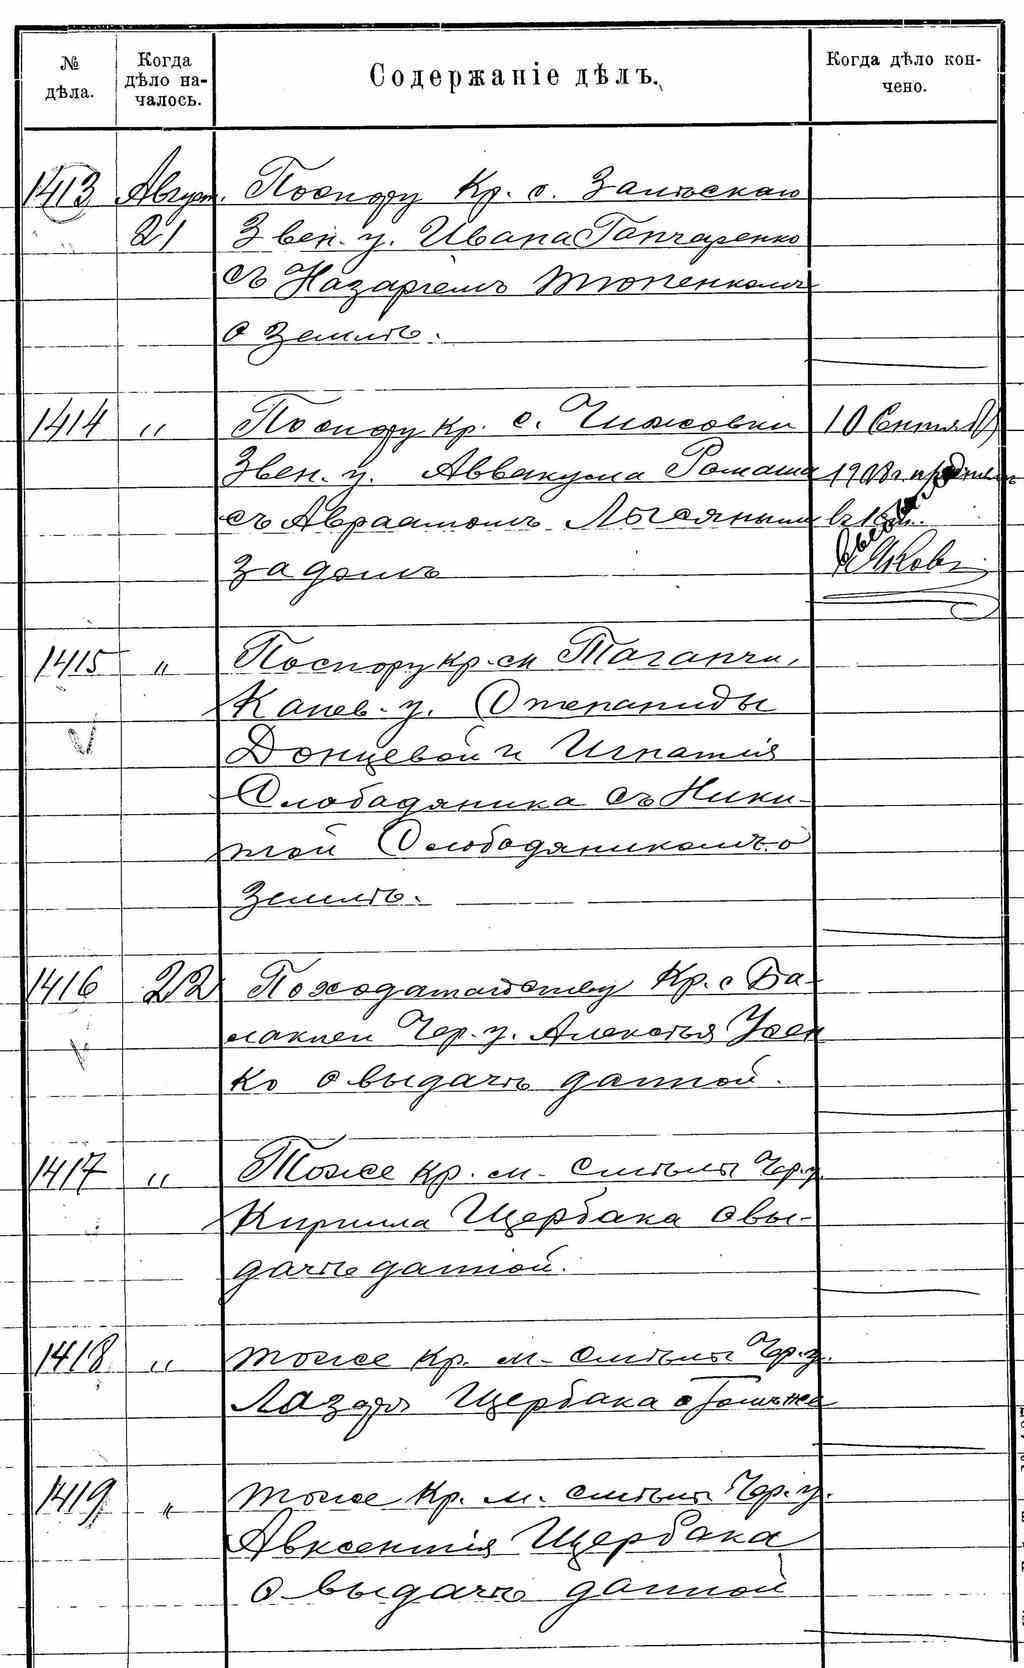 № дѣла. Когда дѣло на-чалось. Содержаніе дѣлъ. Когда дѣло кон-чено.
1413 Август. По спору Кр. с.
21 Звен. у. Ивана Гончаренко
съ Назаріемъ Тюпенкомъ
о землѣ.
1414 " По спору кр. с. Чижовки 10 Сентяб
Звен. у. Аввакума Ромаша 1908 г.
съ Авраамомъ Лысянымъ
за домъ
1415 " По спору кр. м. Таганчи,
Канев. у. Степаниды
Донцевой и Игнатія
Слободяника съ Ники-
той Слободяникомъ о
землѣ.
1416 22 По ходатайству Кр. с Ба-
лаклеи Чер. у. Алексѣя Усен
ко о выдачѣ данной.
1417 " Тоже кр. м. Смѣлы Чер. у.
Кирилла Щербака о вы-
дачѣ данной.
1418 " тоже кр. м. Смѣлы Чер. у.
Лазаря Щербака о томъ же
1419 " тоже Кр. м. Смѣлы Чер. у.
Авксентія Щербака
о выдачѣ данной